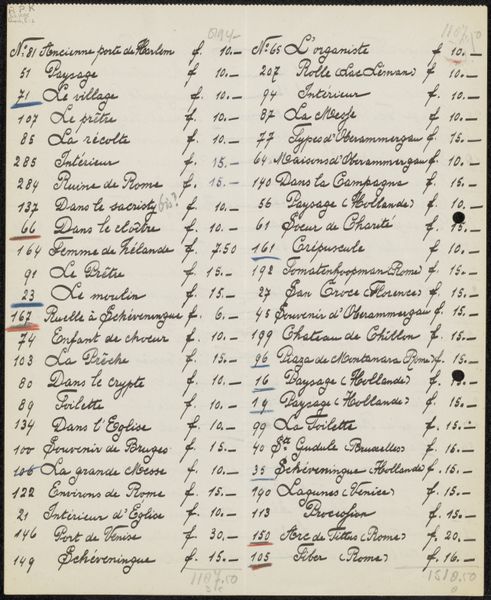 R.P.K.
No. 81 Ancienne porte de Harlem f. 10.—
51 Paysage f. 10.—
71 Le village f. 10.—
107 Le prêtre f. 10.—
85 La récolte f. 10.—
285 Intérieur f. 15.—
284 Ruine de Rome f. 15.—
137 Dans le sacristy f. 10.—
66 Dans le cloître f. 10.—
164 Femme de Zélande f. 7.50
91 Le Prêtre f. 15.—
23 Le moulin f. 15.—
167 Ruelle à Schéveningue f. 6.—
74 Enfant de choeur f. 10.—
103 La Prêche f. 15.—
80 Dans le crypte f. 10.—
89 Toilette f. 10.—
134 Dans l'Eglise f. 10.—
100 Souvenir de Bruges f. 15.—
106 La grande Messe f. 10.—
122 Environs de Rome f. 15.—
21 Intérieur d'Eglise f. 10.—
146 Port de Venise f. 30.—
149 Schéveningue f. 15.—
1187.50
1187.50
No. 65 L'organiste f. 10.—
207 Rolle (Lac Leman) f. 10.—
94 Intérieur f. 10.—
87 La Messe f. 10.—
77 Types d'Oberammergau f. 15.—
64 Maisons d'Oberammergau f. 10.—
140 Dans la Campagne f. 15.—
56 Paysage (Hollande) f. 10.—
61 Soeur de Charité f. 15.—
161 Crépuscule f. 10.—
192 Tomatenkoopman (Rome) f. 15.—
27 San Croce (Florence) f. 15.—
45 Souvenir d'Oberammergau f. 15.—
199 Chateau de Chillon f. 15.—
96 Piaza de Montanara (Rome) f. 15.—
16 Paysage (Hollande) f.
19 Paysage (Hollande) f. 15.—
99 La Toilette f. 15.—
40 Ste. Gudule (Bruxelles) f. 16.—
35 Schéveningue (Hollande) f. 15.—
190 Lagunes (Venise) f. 15.—
113 Procession f. 15.—
150 Arc de Tittus (Rome) f. 20.—
105 Tiber (Rome) f. 16.—
1518.50